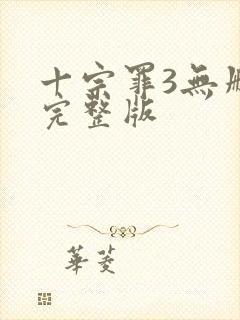 十宗罪3無删
完整版
華菱